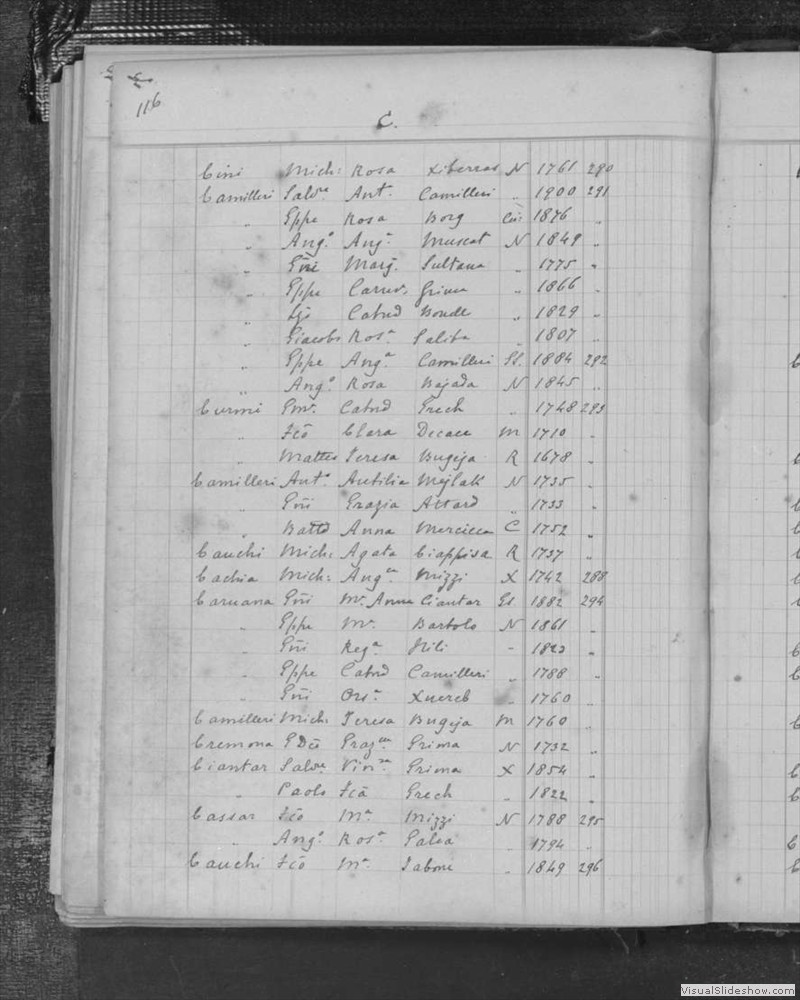 116
C.
Cini Mich: Rosa Xiberras N 1761 290
Camilleri Salv.re Ant.a Camilleri „ 1900 291
„ Eppe Rosa Borg Cu: 1876 „
„ Ang.o Ang.a Muscat N 1849 „
„ Gni Marg. Sultana „ 1775 „
„ Eppe Carm. Grima „ 1866 „
„ Catnd „ 1829 „
„ Giacobo Ros.a Saliba „ 1807 „
„ Eppe Ang.a Camilleri 1884 292
„ Ang.o Rosa Bajada N 1845 „
Curmi Catnd Grech „ 1748 293
„ Fco Clara M 1710 „
„ Matteo Teresa Bugeja R 1678 „
Camilleri Ant.o Mejlak N 1735 „
„ Gni Grazia Attard „ 1733 „
„ Battd Anna Mercieca C 1752 „
Cauchi Mich: Agata Ciappisa R 1737 „
Cachia Mich: Ang.ca Mizzi X 1742 288
Caruana Gni M.a Anna Ciantar 1882 294
„ Eppe M.a Bartolo N 1861 „
„ Gni Reg.a „ 1823 „
„ Eppe Catnd Camilleri „ 1788 „
„ Gni Ors.a Xuereb „ 1760 „
Camilleri Mich: Teresa Bugeja M 1760 „
Cremona Graz.lla Grima N 1732 „
Ciantar Salv.re Vin.za Grima X 1854 „
„ Paolo Fca Grech „ 1822 „
Cassar Fco M.a Mizzi N 1788 295
„ Ang.o Ros.a Galea „ 1794 „
Cauchi Fco M.a Tabone „ 1849 296
VisualSlideshow.com